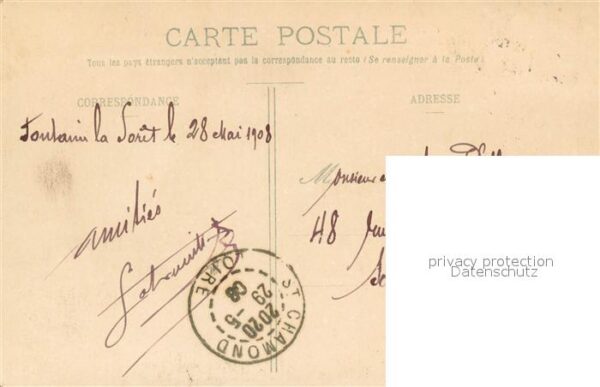 CARTE POSTALE
Tous les pays étrangers n'acceptent pas la correspondance au recto (Se renseigner à la Poste)
CORRESPONDANCE
ADRESSE
la Forêt le 28 Mai 1908
Monsieur
48
amitiés
ST CHAMOND
LOIRE
2020
29 -5
08
privacy protection
Datenschutz